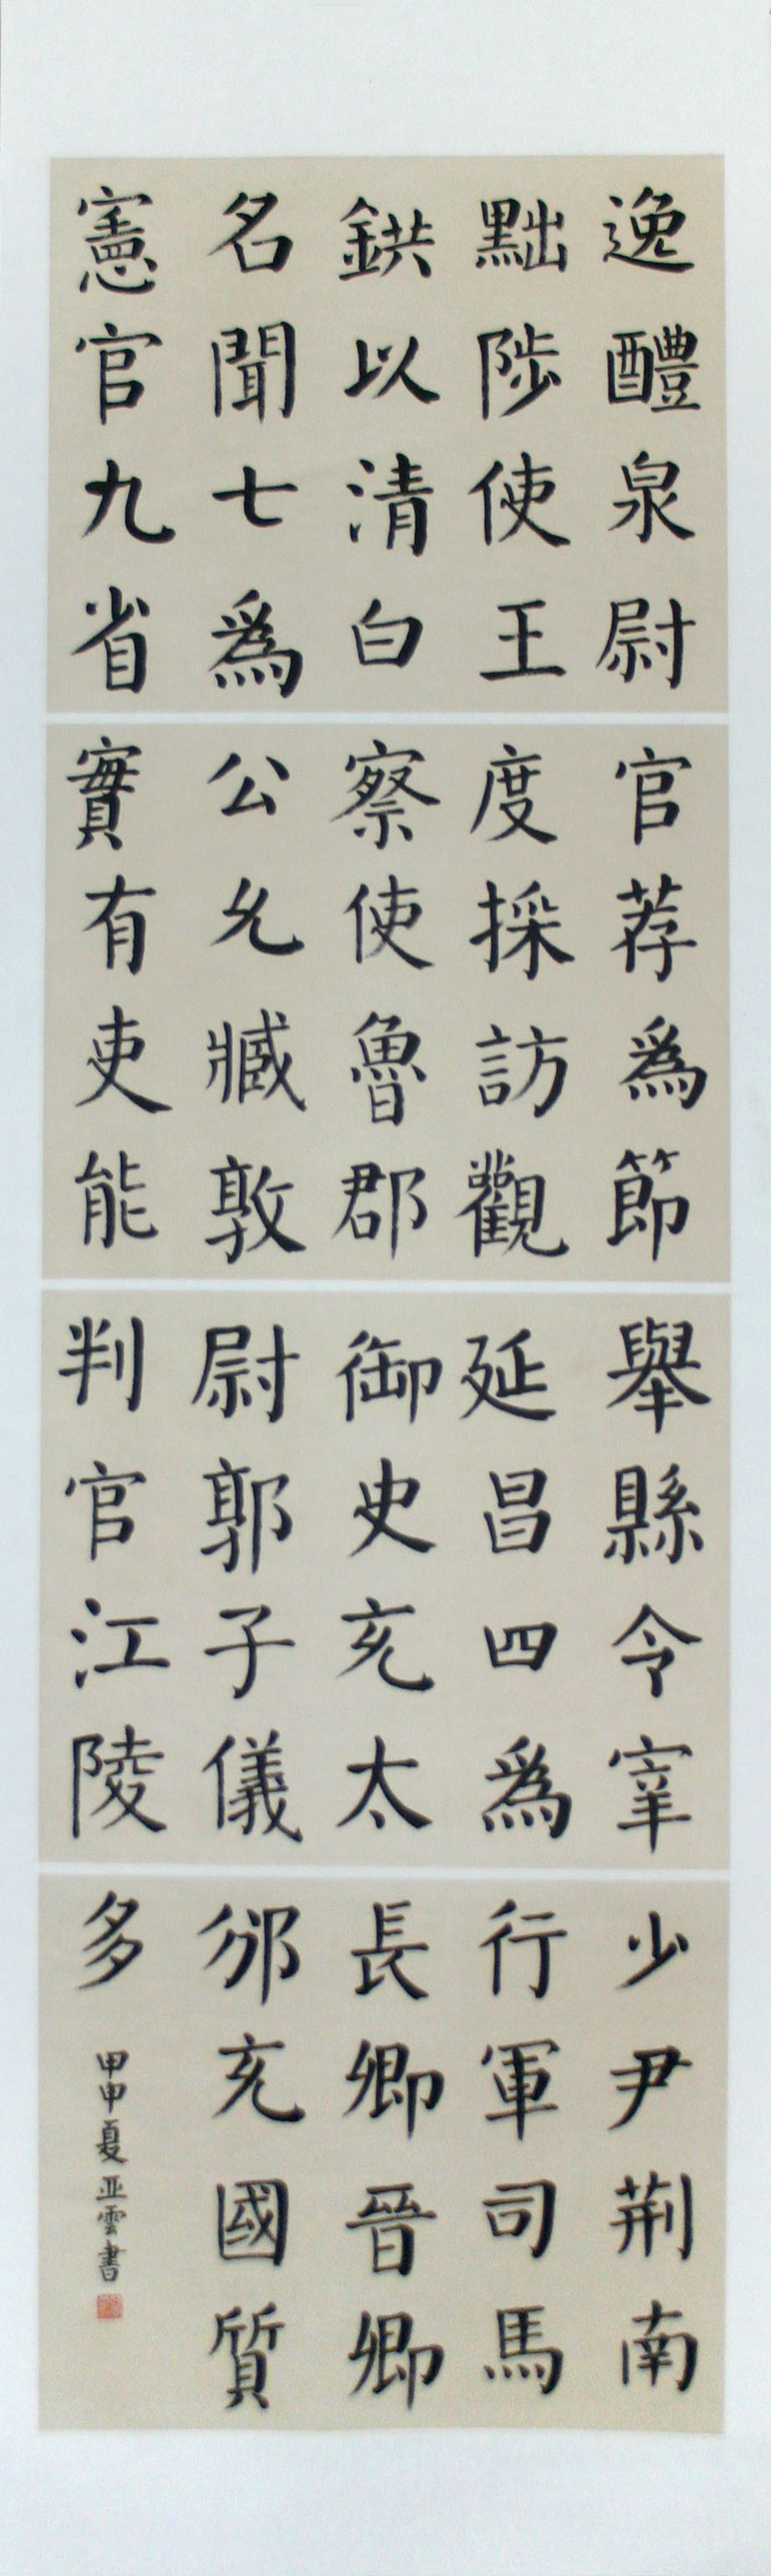 逸醴泉尉
黜陟使王
鉷以清白
名聞七爲
憲官九省
官荐爲節
度採訪觀
察使魯郡
公允臧敦
實有吏能
舉縣令宰
延昌四爲
御史充太
尉郭子儀
判官江陵
少尹荆南
行軍司馬
長卿晉卿
邠充國質
多
甲申夏亚雲書